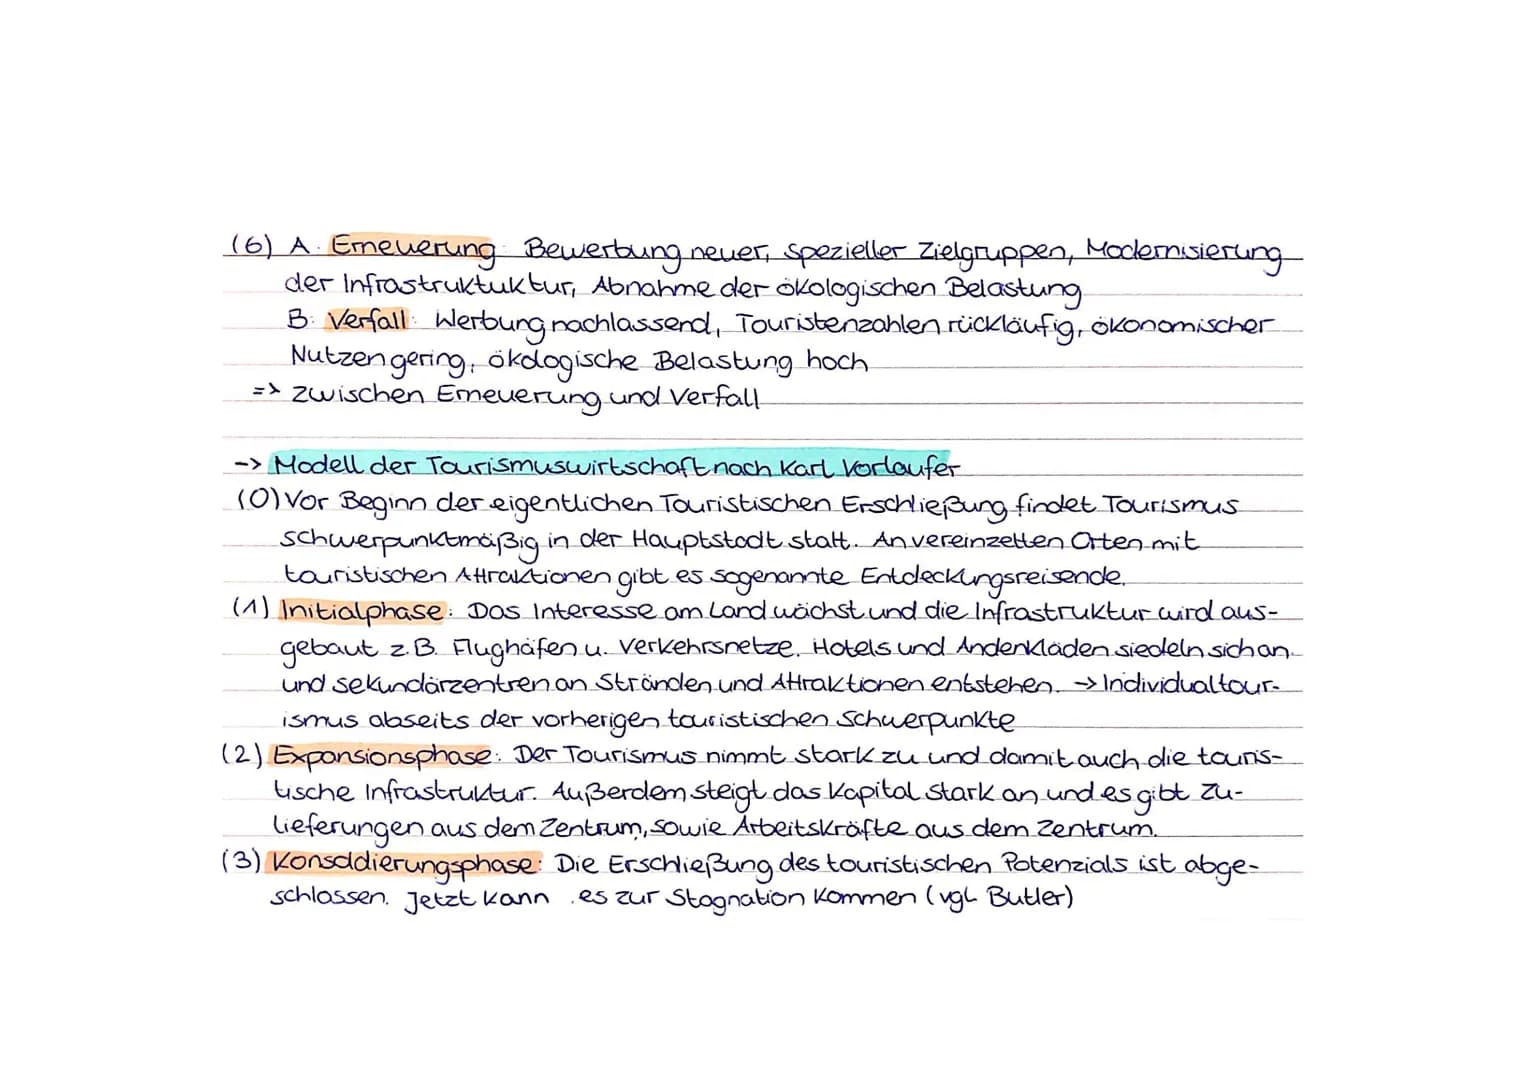 (6) A: Erneuerung: Bewerbung neuer, spezieller Zielgruppen, Modernisierung
der Infrastruktuktur, Abnahme der ökologischen Belastung
B: Verfall: Werbung nachlassend, Touristenzahlen rückläufig, ökonomischer
Nutzen gering, ökologische Belastung hoch
=> zwischen Erneuerung und Verfall
-> Modell der Tourismuswirtschaft nach Karl Vorlaufer
(0) Vor Beginn der eigentlichen Touristischen Erschließung findet Tourismus
schwerpunktmäßig in der Hauptstadt statt. An vereinzelten Orten mit
touristischen Attraktionen gibt es sogenannte Entdeckungsreisende.
(1) Initialphase: Das Interesse am Land wächst und die Infrastruktur wird aus-
gebaut z.B. Flughäfen u. Verkehrsnetze. Hotels und Andenkläden siedeln sich an
und sekundärzentren an Stränden und Attraktionen entstehen. -> Individualtour-
ismus abseits der vorherigen touristischen Schwerpunkte
(2) Expansionsphase: Der Tourismus nimmt stark zu und damit auch die touris-
tische Infrastruktur. Außerdem steigt das Kapital stark an und es gibt Zu-
lieferungen aus dem Zentrum, sowie Arbeitskräfte aus dem Zentrum.
(3) Konsolidierungsphase: Die Erschließung des touristischen Potenzials ist abge-
schlossen. Jetzt kann es zur Stagnation kommen (vgl. Butler)